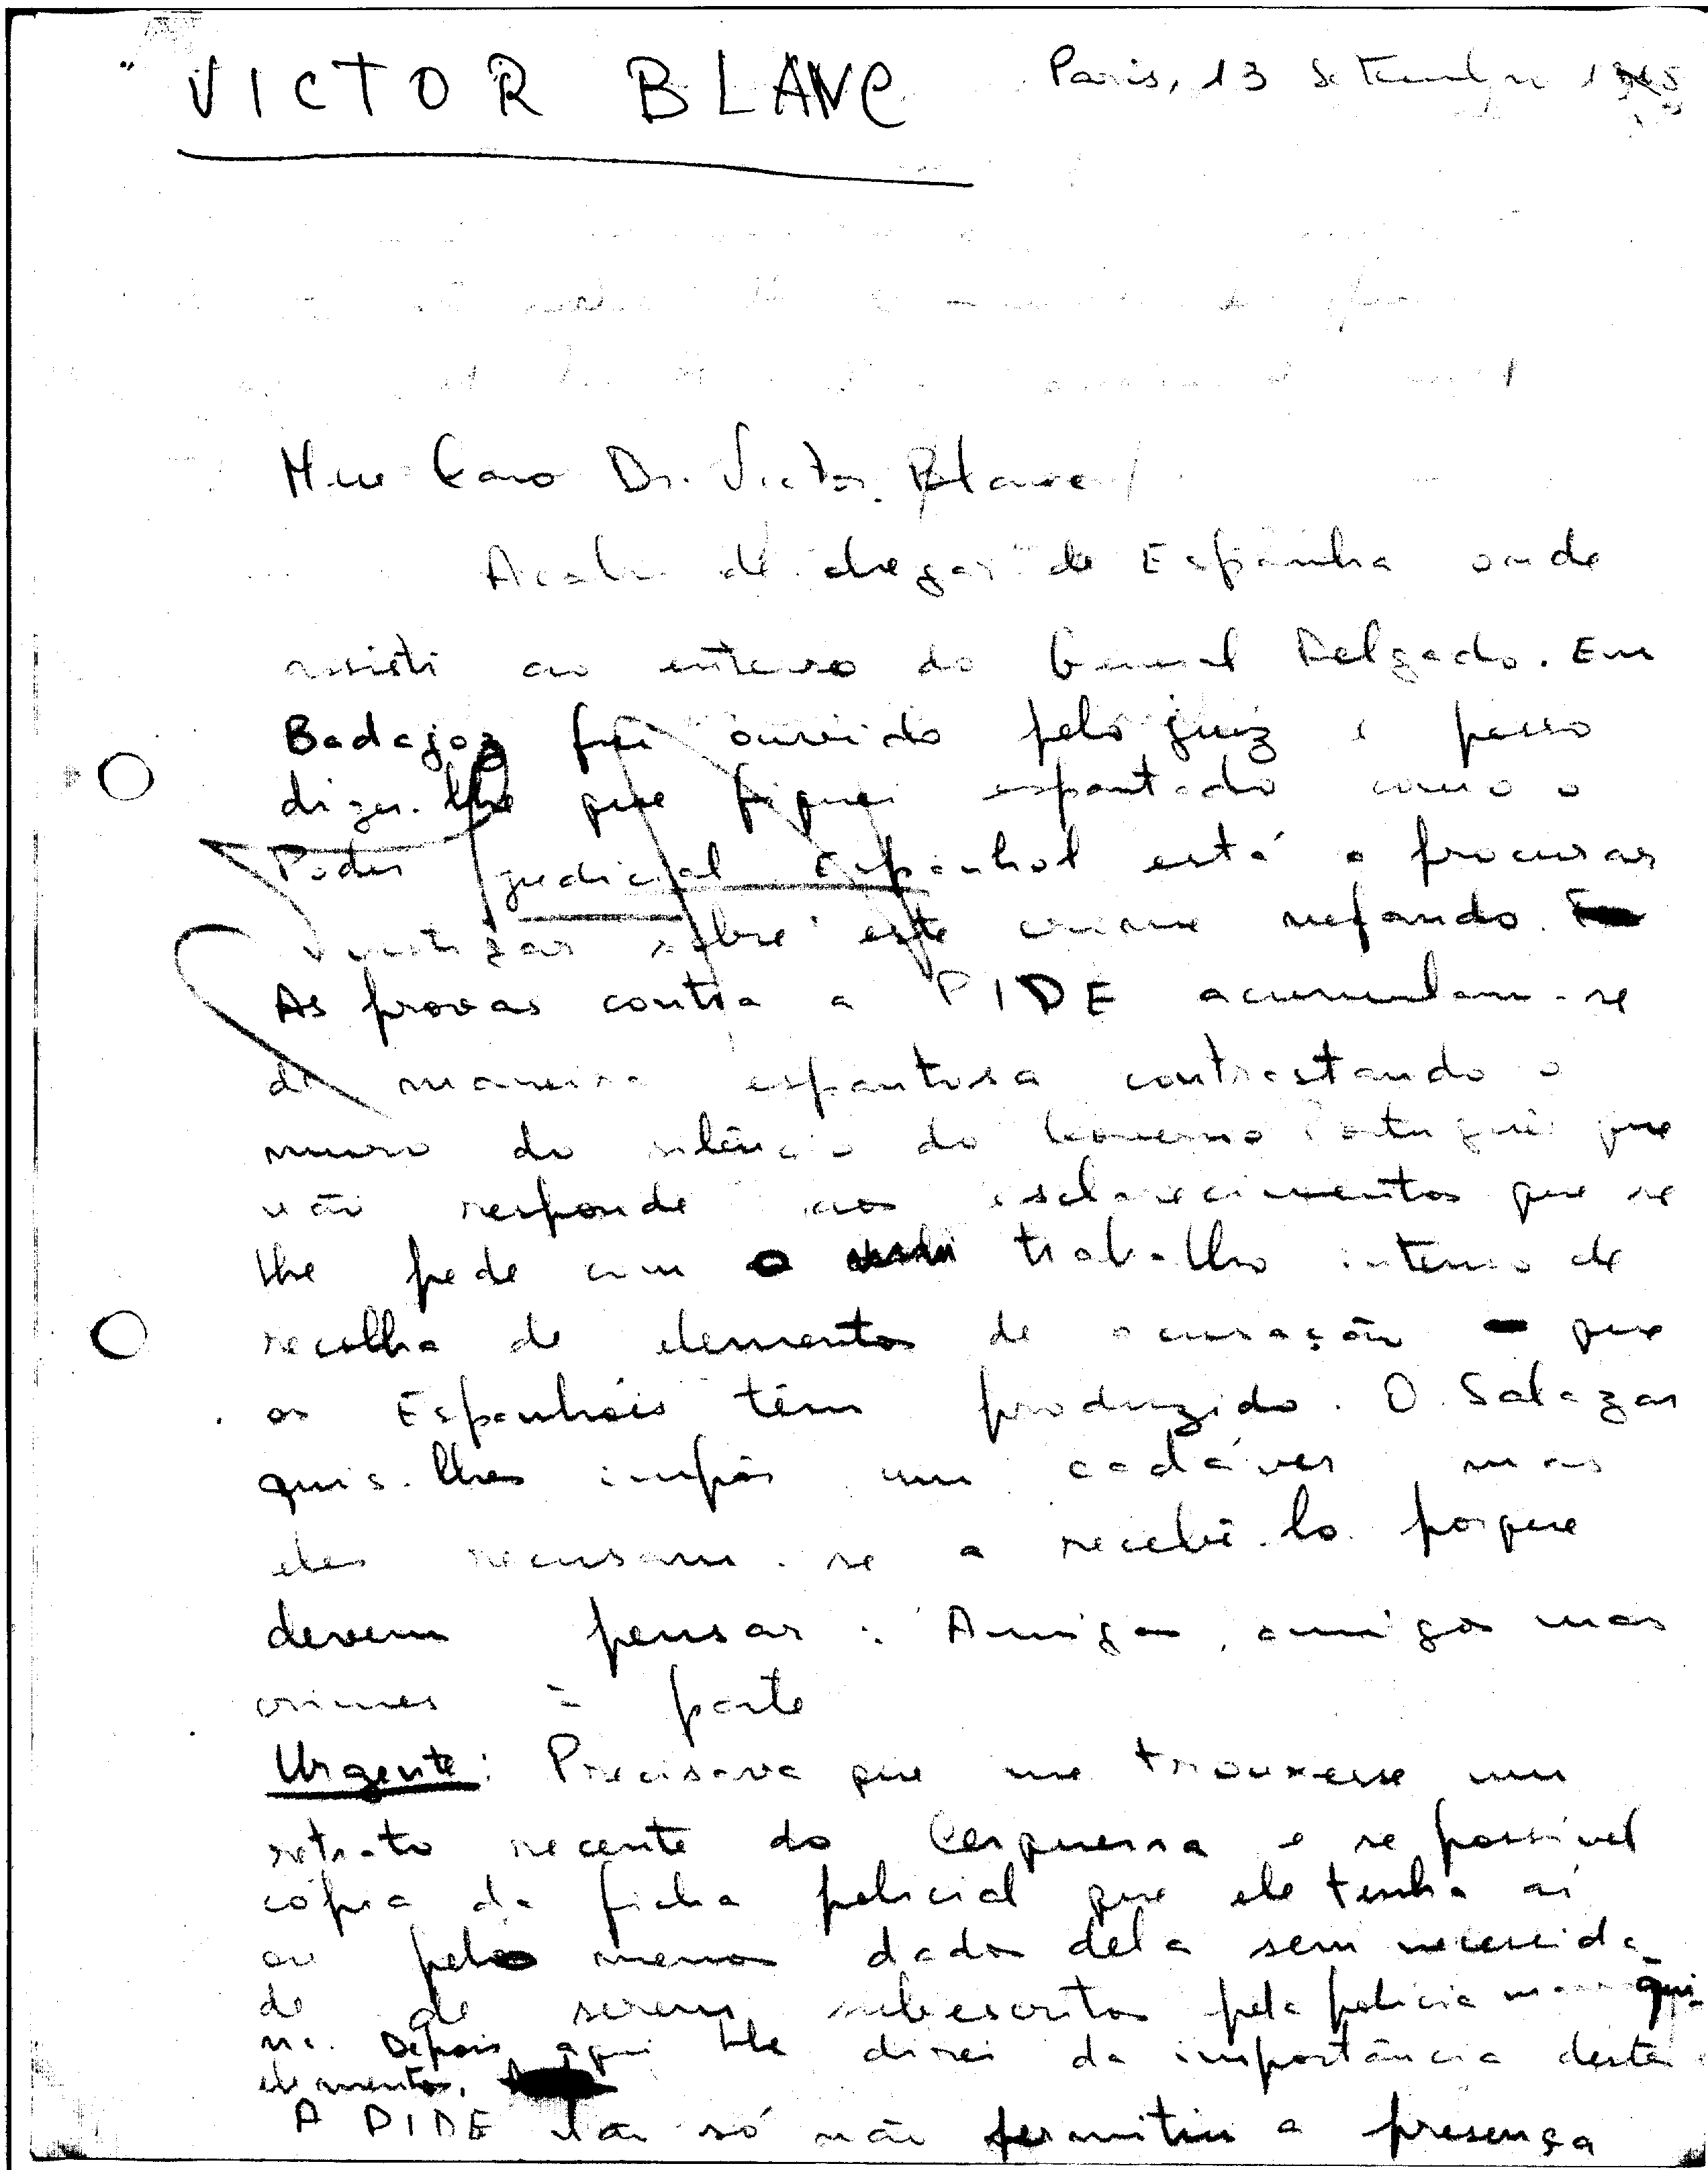 " VICTOR BLANC
Paris, 13 Setembro 1965
Meu Caro Dr. Victor Blanc,
Acabo de chegar de Espanha onde
assisti ao enterro do General Delgado. Em
Badajoz fui ouvido pelo juiz e posso
dizer-lhe que fiquei espantado como o
Poder judicial Espanhol está a procurar
investigar sobre este crime nefando.
As provas contra a PIDE acumulam-se
de maneira espantosa contrastando o
muro do silêncio do Governo Português que
não responde aos esclarecimentos que se
lhe pede com o trabalho intenso de
recolha de elementos de acusação que
os Espanhóis têm produzido. O Salazar
quis-lhes impôr um cadáver mas
eles recusam-se a recebê-lo porque
devem pensar: Amigos, amigos mas
crimes à parte
Urgente: Precisava que me trouxesse um
retrato recente do Cerqueira e se possível
cópia da ficha policial que ele tenha aí
ou pelo menos dados dela sem necessida-
de de serem subescritos pela policia marroqui-
na. Depois aqui lhe direi da importância destes
elementos.
A PIDE não só não permitiu a presença